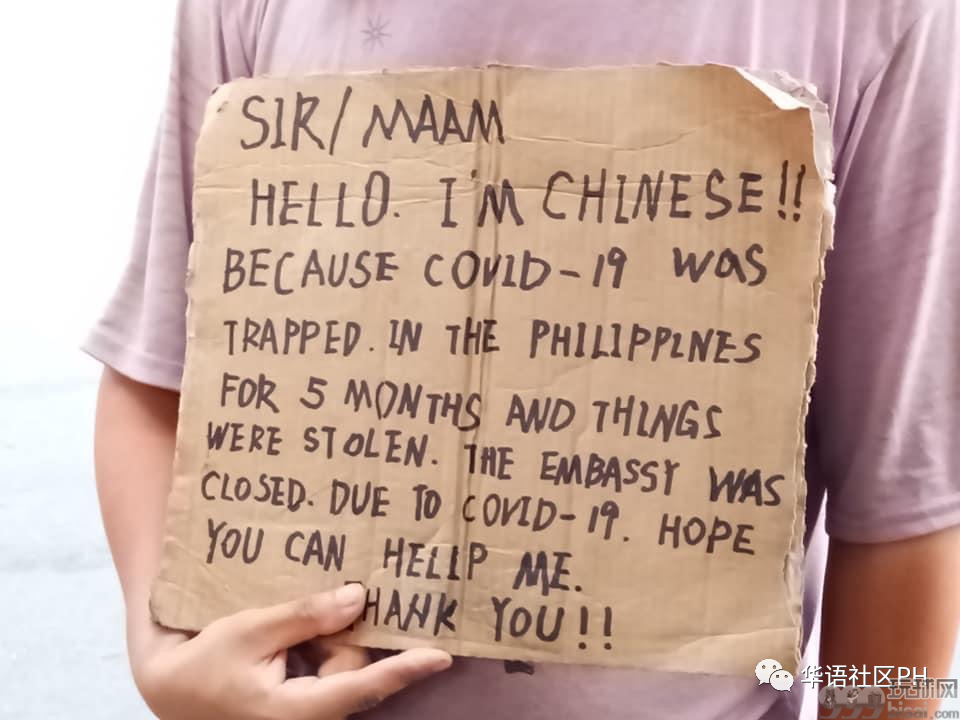 SIR/MAAM
HELLO. I'M CHINESE!!
BECAUSE COVID-19 WAS
TRAPPED. IN THE PHILIPPINES
FOR 5 MONTHS AND THINGS
WERE STOLEN. THE EMBASSY WAS
CLOSED. DUE TO COVID-19. HOPE
YOU CAN HELLP ME.
THANK YOU!!
华语社区PH
玩球网
bisai.com